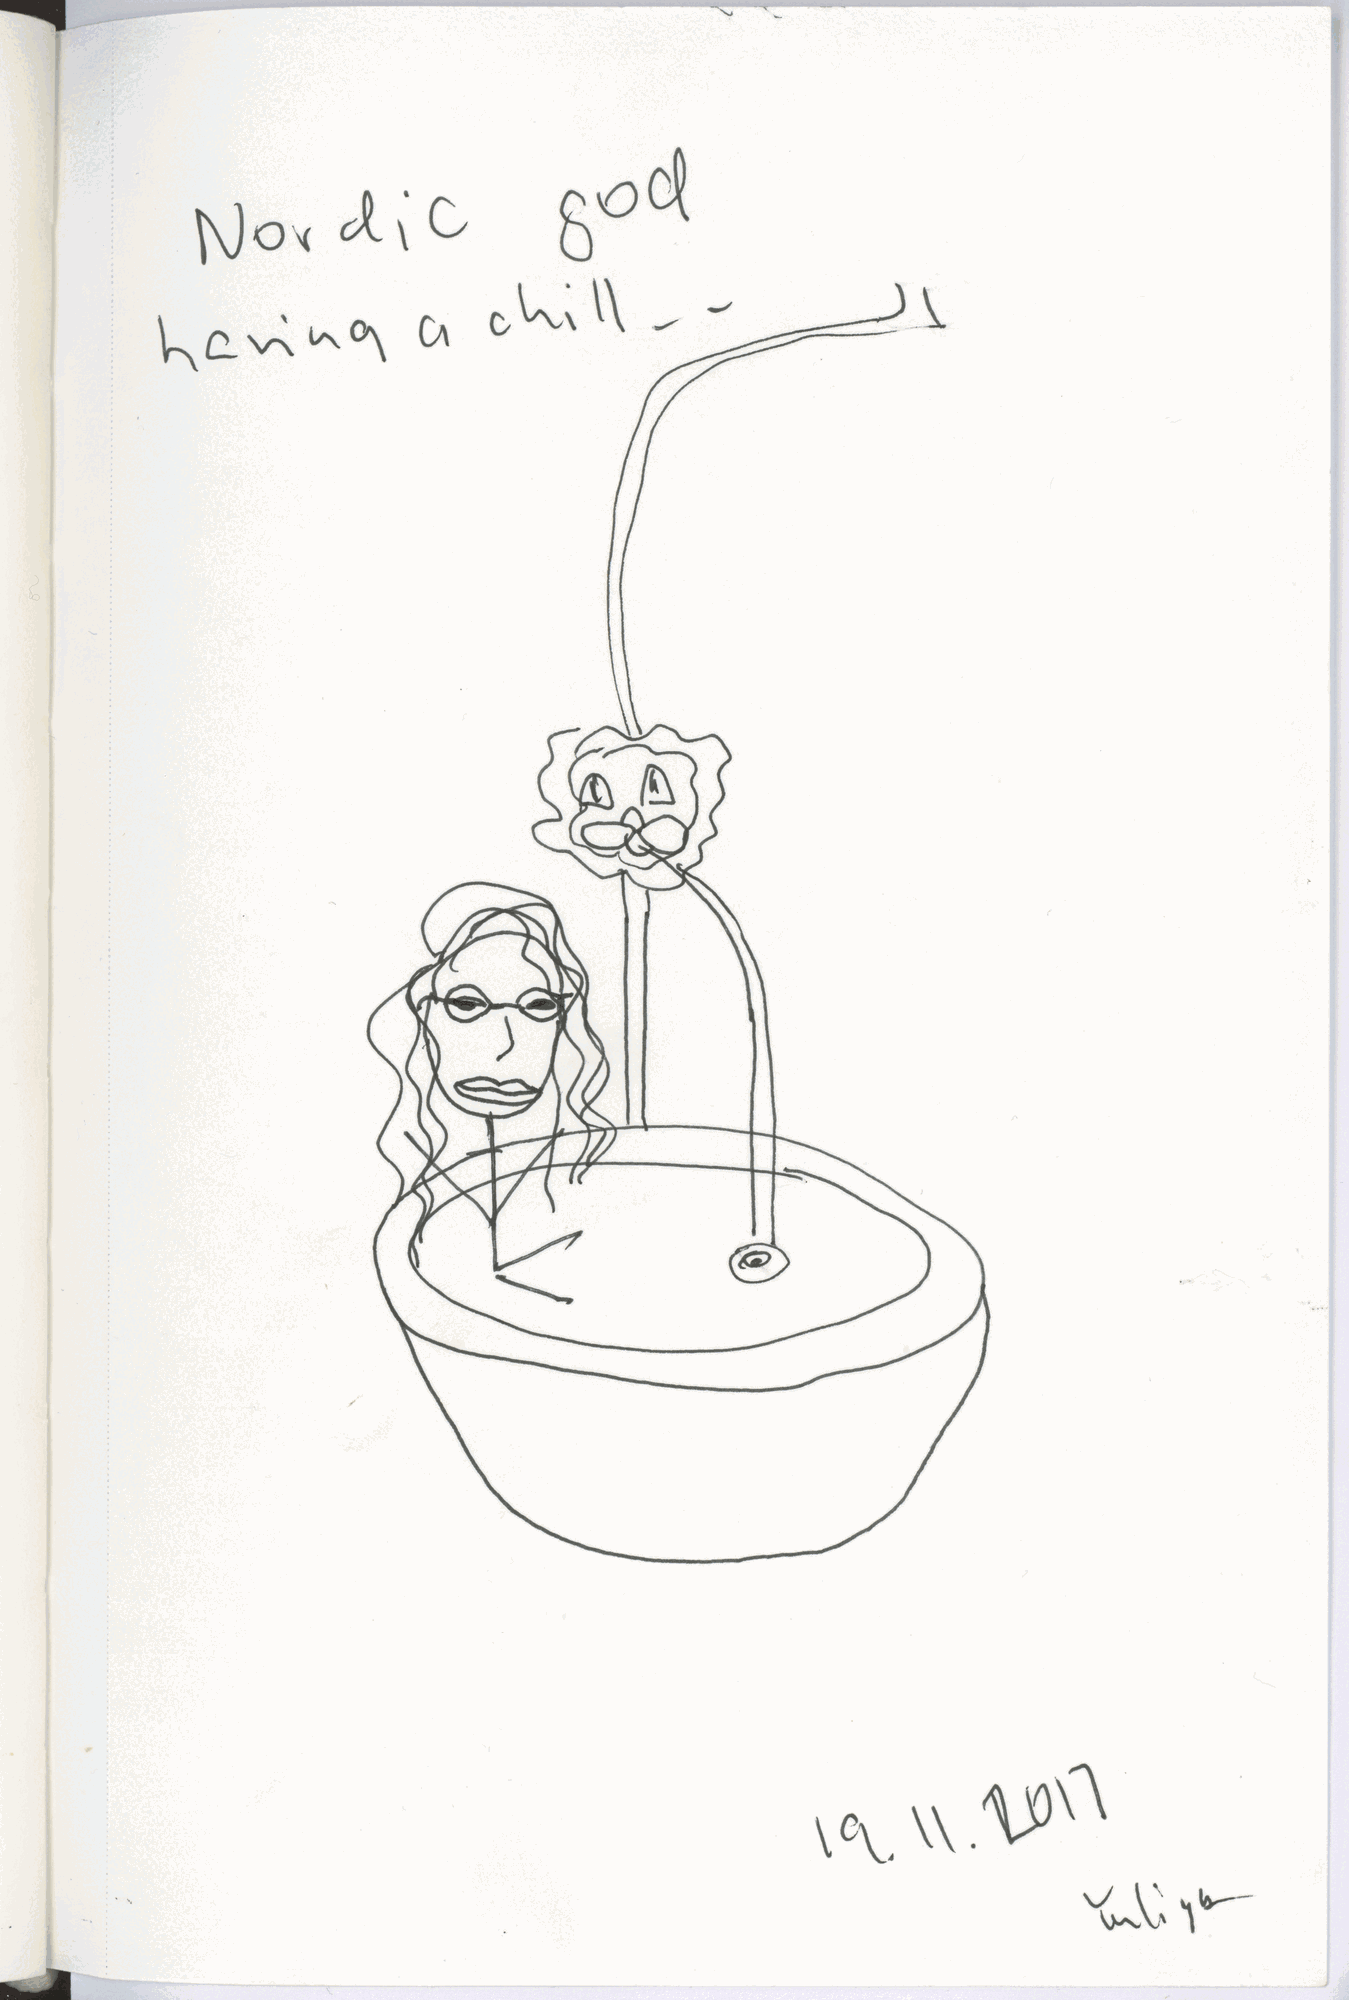 Nordic god
having a chill--
19.11.2017
Yuliya